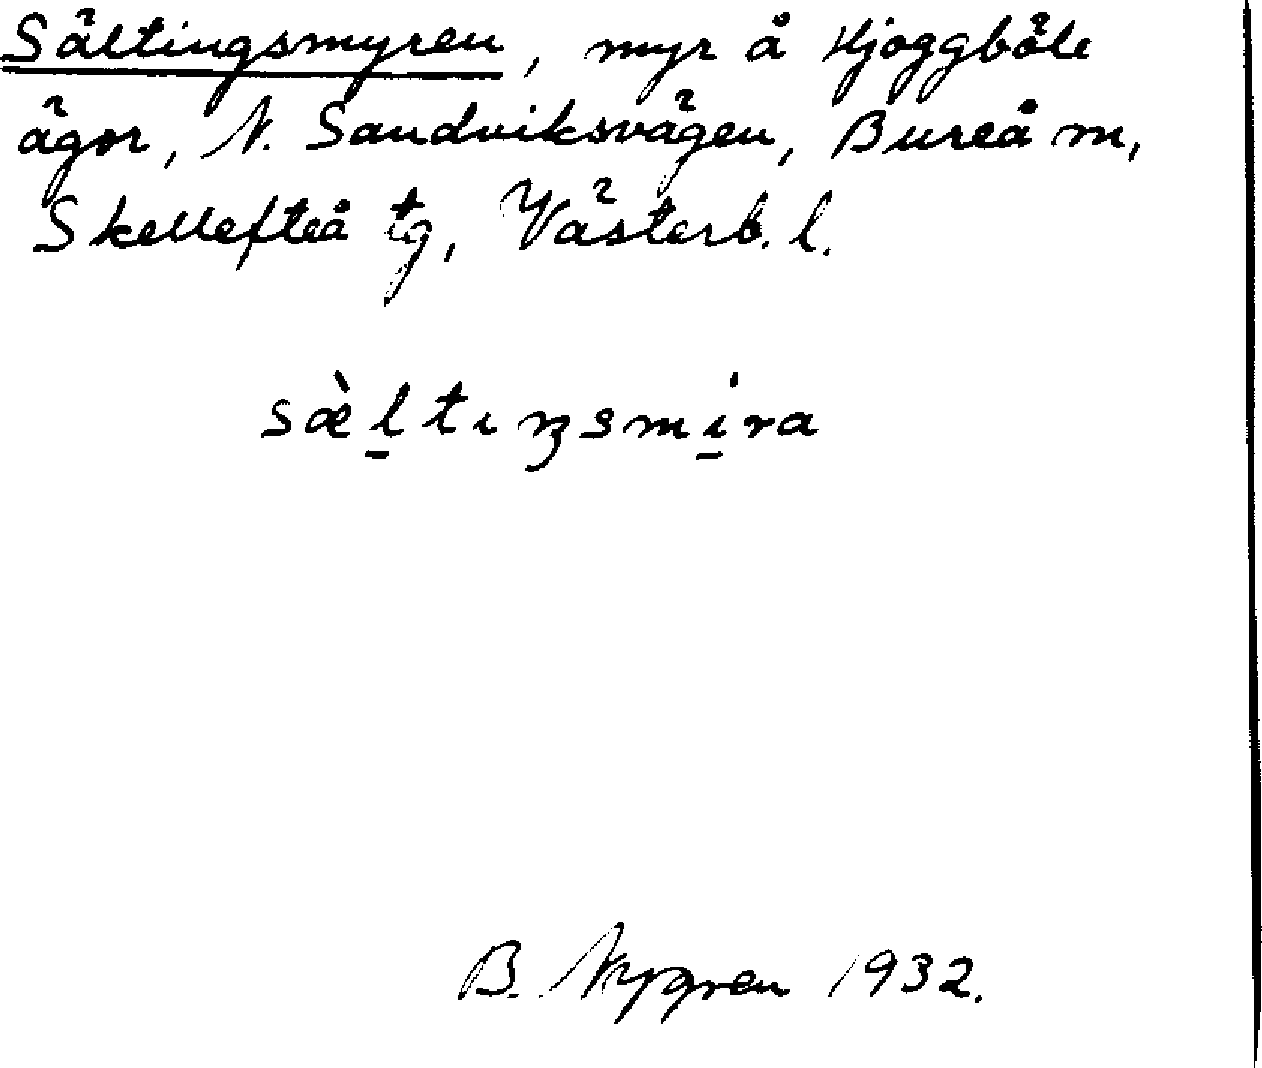 Sältingsmyren, myr å Hjoggböle
ägor, N. Sandviksvägen, Bureå m,
Skellefteå tg, Västerb. l.
sæ̀l̠tıŋsmi̠ra
B. Nygren 1932.